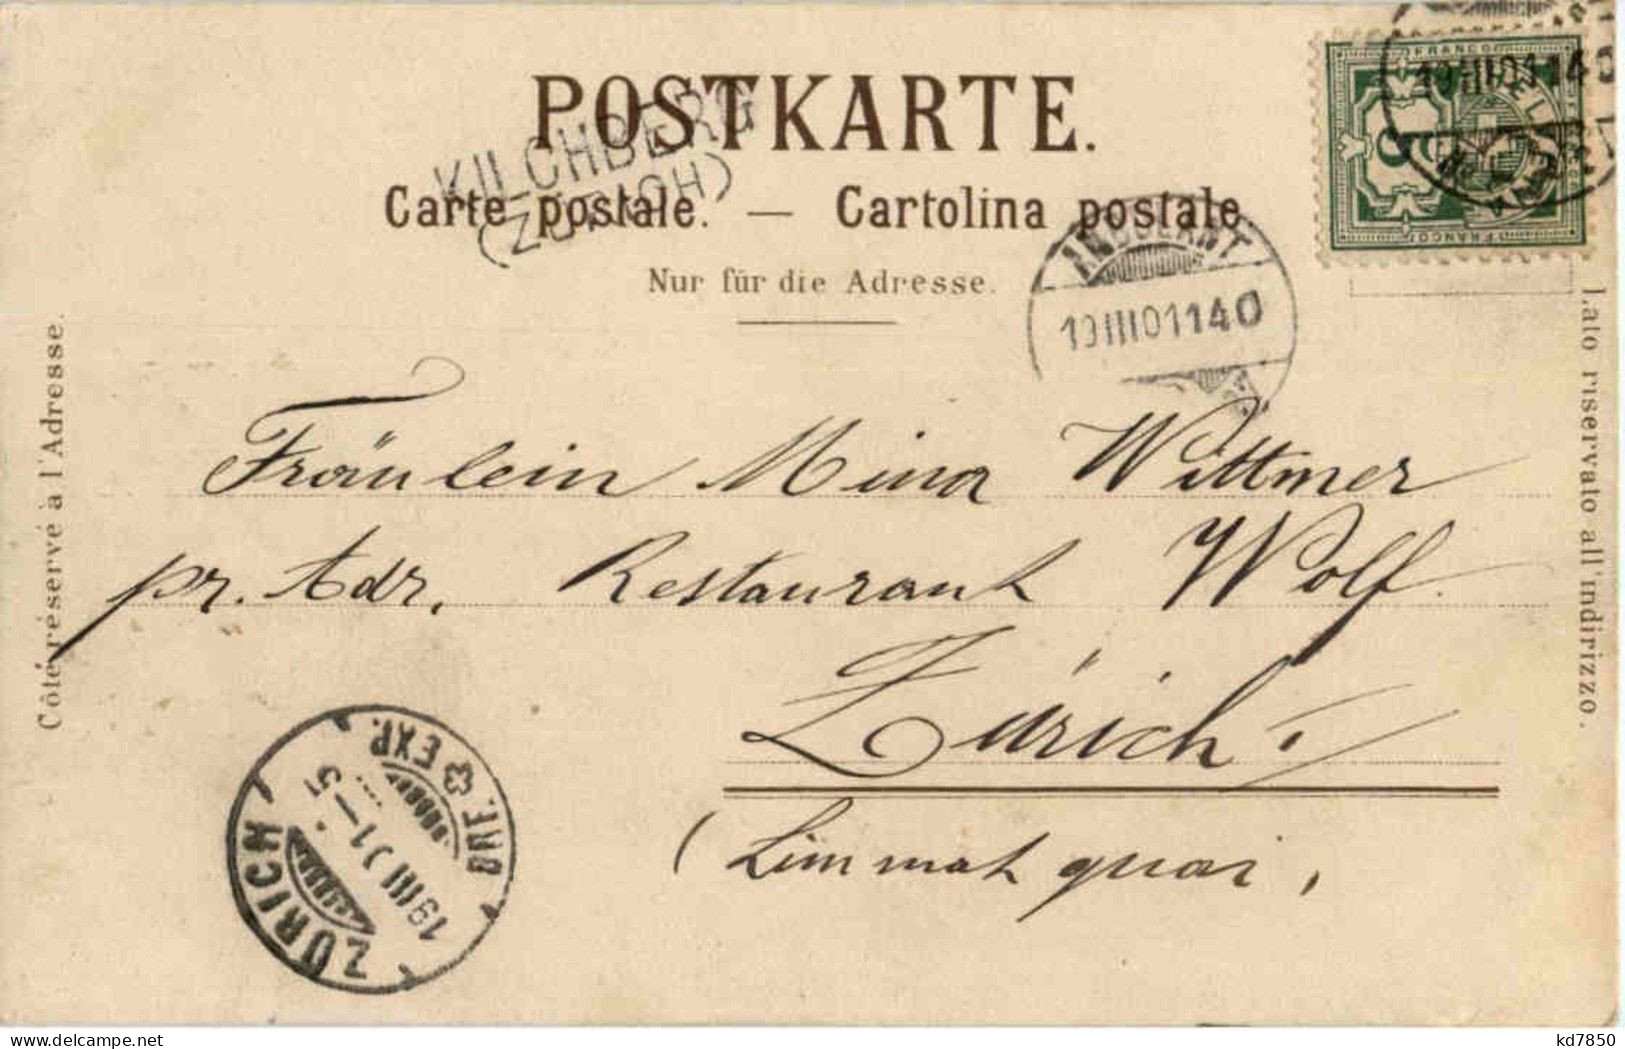 POSTKARTE.
KILCHBERG
(ZÜRICH)
Carte postale. — Cartolina postale
Nur für die Adresse.
FRANCO
HELVETIA
5
FRANCO
19 III 01 14 0
AMBULANT
19 III 01 14 0
Côté réservé à l'Adresse.
Lato riservato all'indirizzo.
Fräulein Mina Wittmer
pr. Adr. Restaurant Wolf.
Zürich I
(Limmatquai,
ZÜRICH
19 III 01 — 5
BRF. EXP.
kd7850